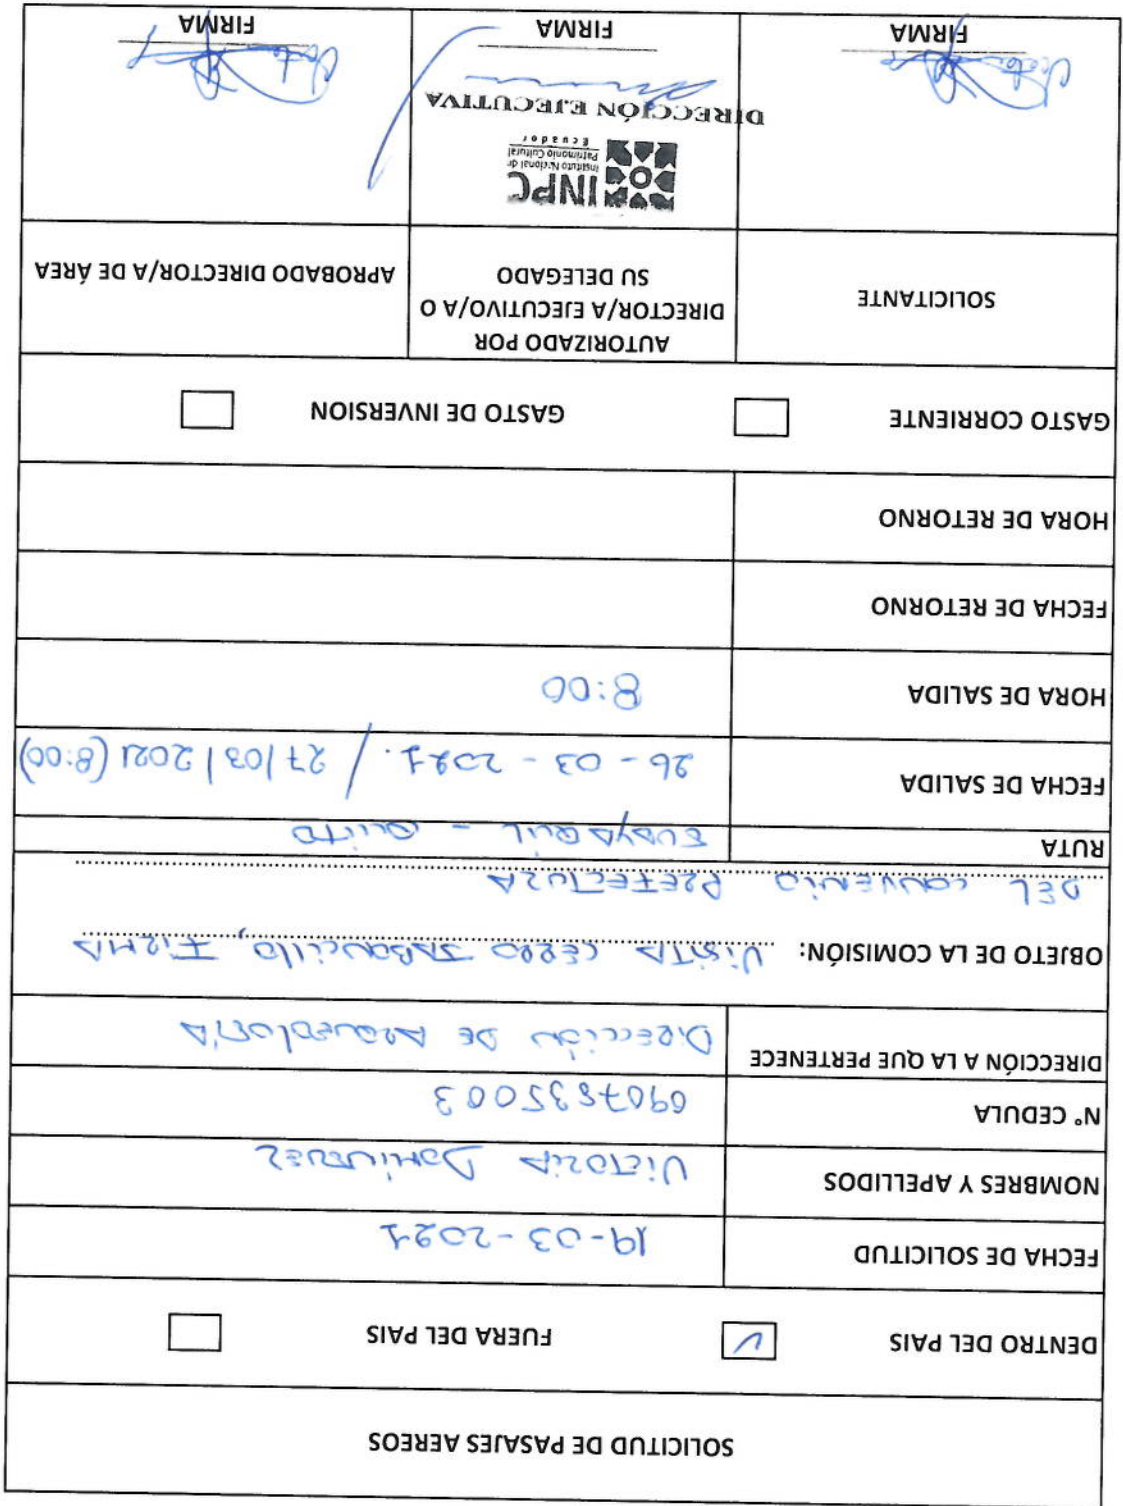 SOLICITUD DE PASAJES AEREOS
DENTRO DEL PAIS FUERA DEL PAIS
FECHA DE SOLICITUD 19-03-2021
NOMBRES Y APELLIDOS VICTORIA DOMÍNGUEZ
N° CEDULA 0907835003
DIRECCIÓN A LA QUE PERTENECE DIRECCIÓN DE ARQUEOLOGÍA
OBJETO DE LA COMISIÓN: VISITA CERRO JABONCILLO, FIRMA
DEL CONVENIO PREFECTURA
RUTA GUAYAQUIL - QUITO
FECHA DE SALIDA 26-03-2021. / 27/03/2021 (8:00)
HORA DE SALIDA 8:00
FECHA DE RETORNO
HORA DE RETORNO
GASTO CORRIENTE GASTO DE INVERSION
SOLICITANTE
AUTORIZADO POR
DIRECTOR/A EJECUTIVO/A O
SU DELEGADO
APROBADO DIRECTOR/A DE ÁREA
INPC
Instituto Nacional de
Patrimonio Cultural
Ecuador
DIRECCIÓN EJECUTIVA
FIRMA FIRMA FIRMA